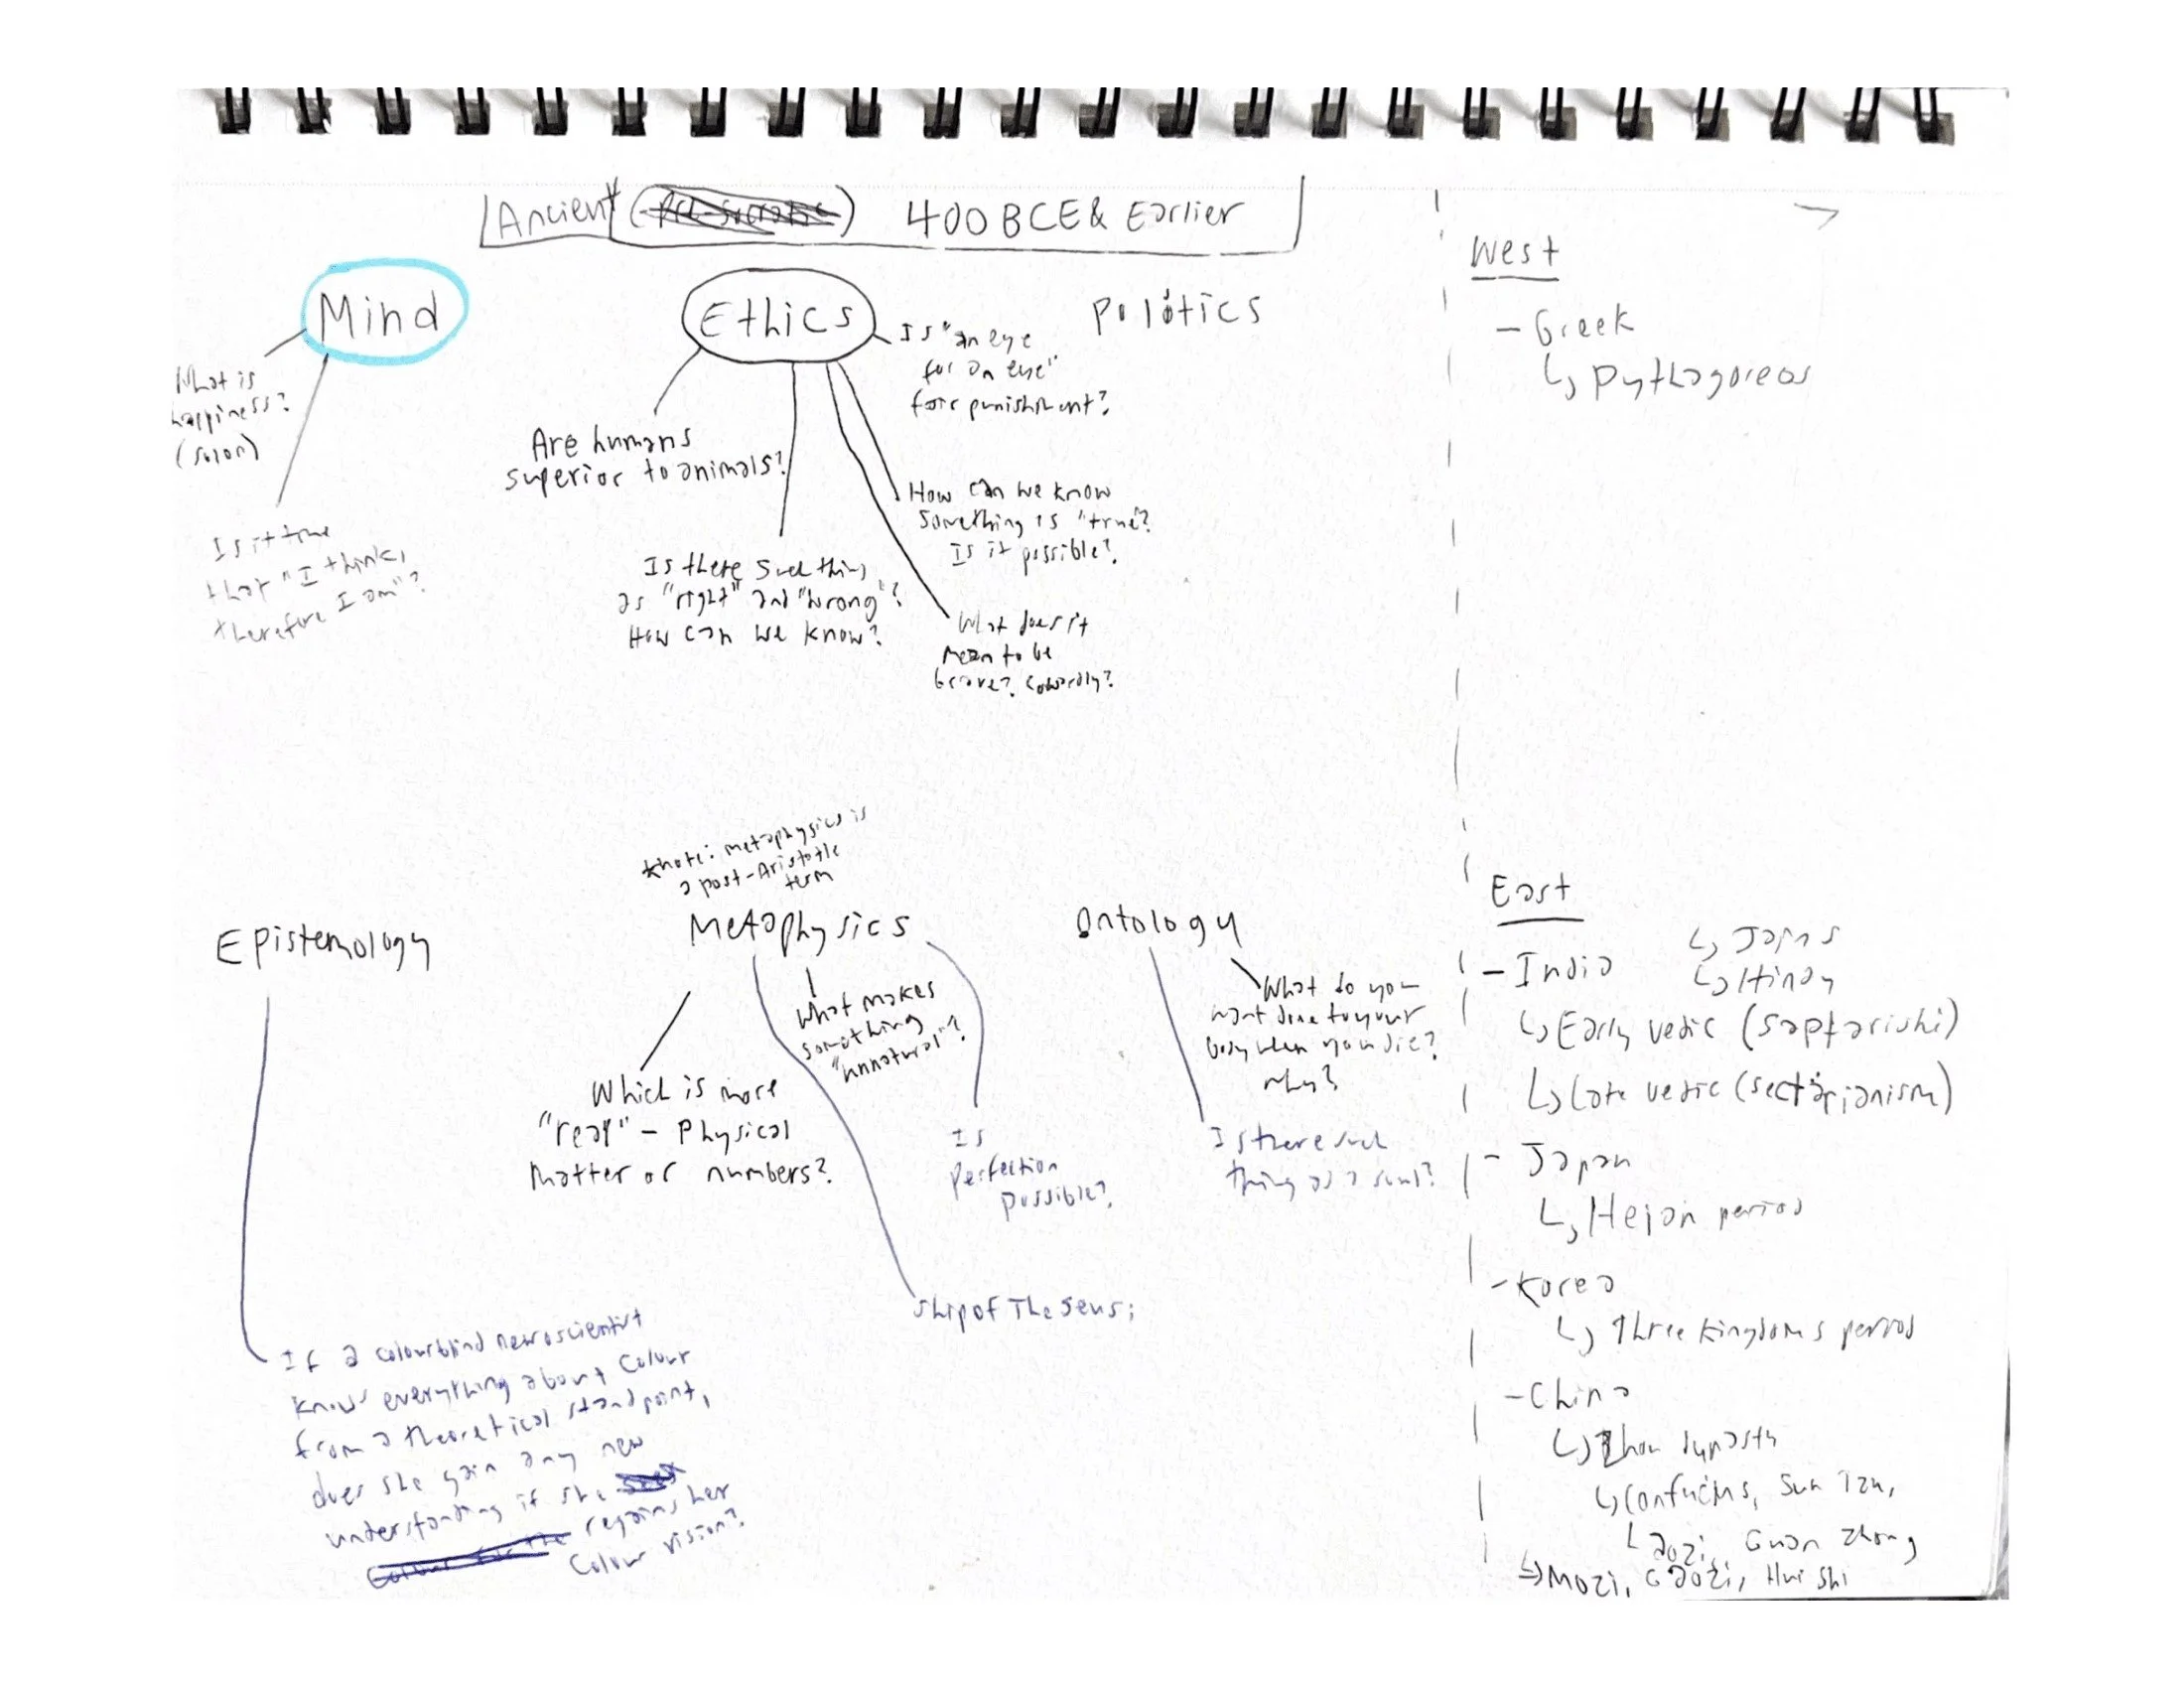 Ancient (Pre-Socratic) 400 BCE & Earlier
Mind
What is
happiness?
(Solon)
Is it true
that "I think,
therefore I am"?
Ethics
Is "an eye
for an eye"
fair punishment?
Are humans
superior to animals?
How can we know
something is "true"?
Is it possible?
Is there such thing
as "right" and "wrong"?
How can we know?
What does it
mean to be
brave? Cowardly?
Politics
Epistemology
If a colourblind neuroscientist
knows everything about colour
from a theoretical standpoint,
does she gain any new
understanding if she
regains her
colour vision?
*note: metaphysics is
a post-Aristotle
term
Metaphysics
Which is more
"real" - Physical
matter or numbers?
What makes
something
"unnatural"?
Is
perfection
possible?
Ship of Theseus;
Ontology
What do you
want done to your
body when you die?
Why?
Is there such
thing as a soul?
West
- Greek
↳ Pythagoreas
East
- India
↳ Jains
↳ Hindu
↳ Early vedic (Saptarishi)
↳ Late vedic (sectarianism)
- Japan
↳ Heian period
- Korea
↳ Three Kingdoms period
- China
↳ Zhou dynasty
↳ Confucius, Sun Tzu,
Laozi, Guan Zhong
↳ Mozi, Gaozi, Hui Shi